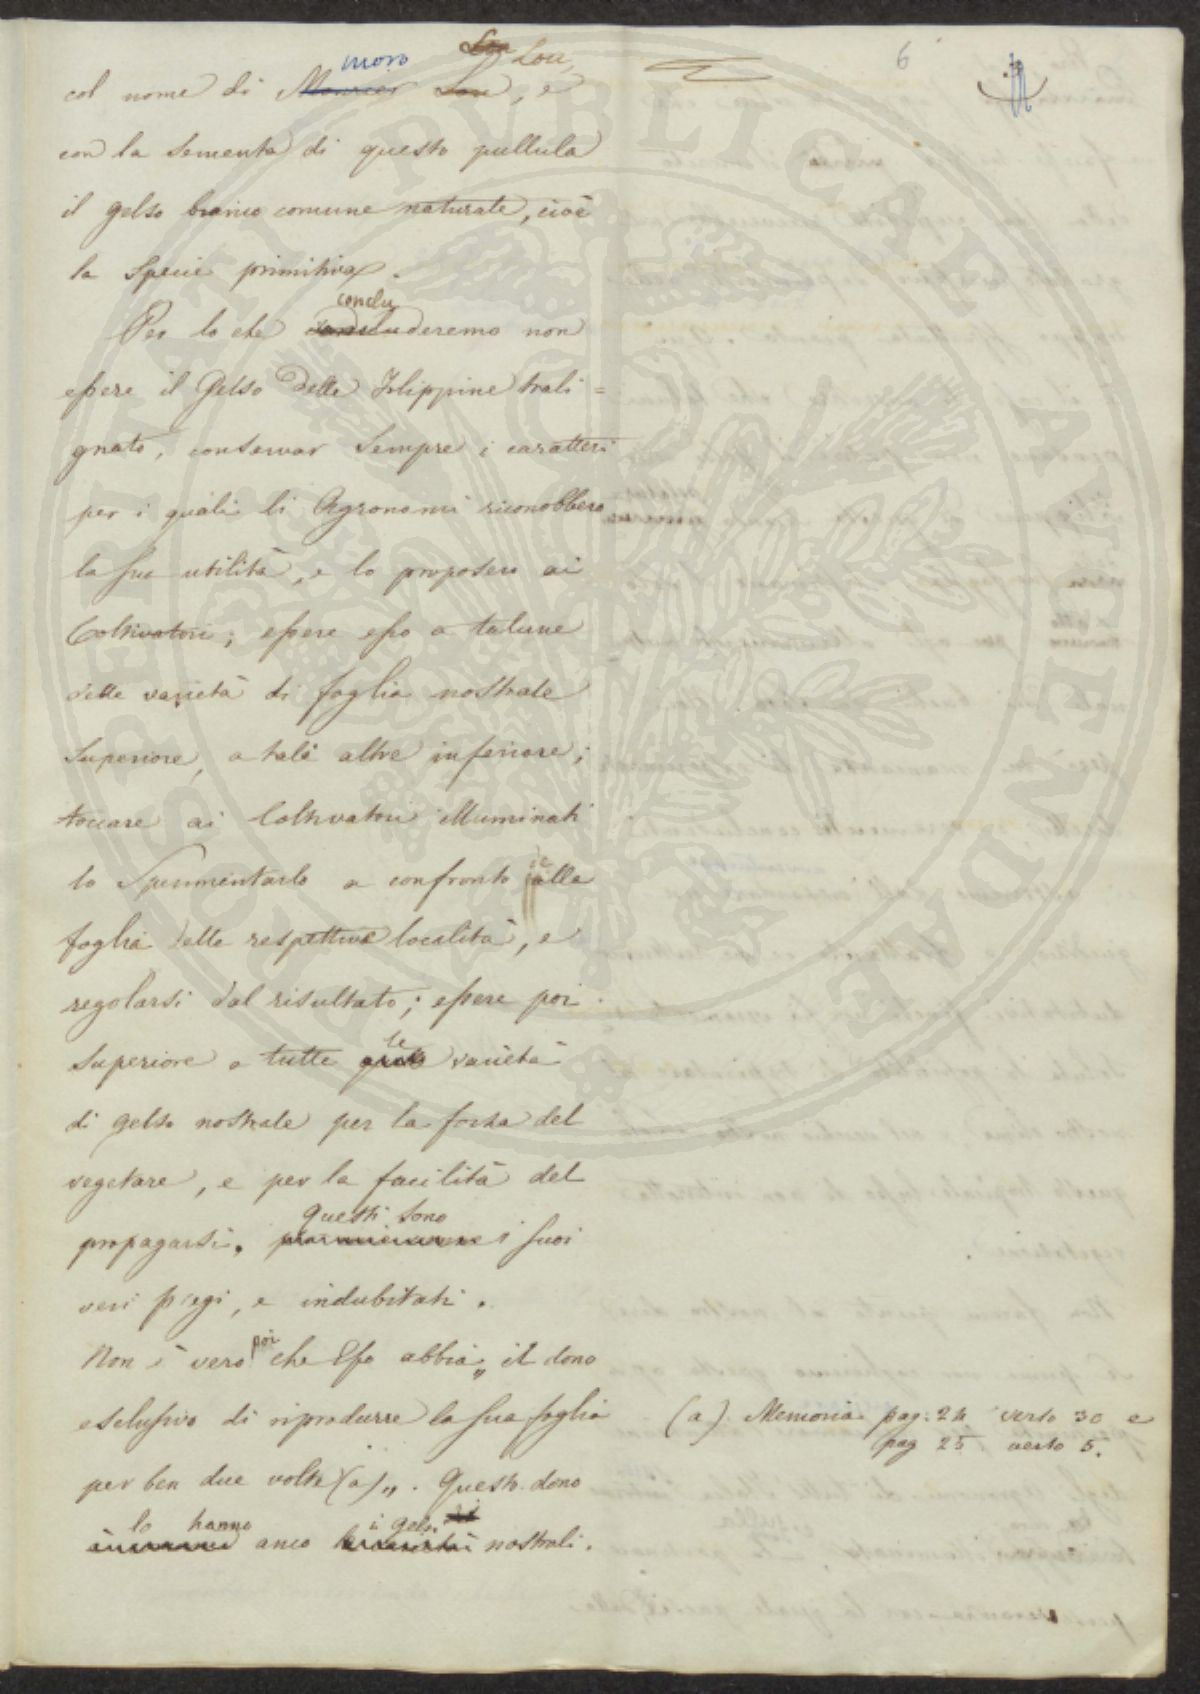 6
col nome di moro Lou, e
con la sementa di questo pullula
il gelso bianco comune naturale, cioè
la Specie primitiva.
Per lo che concluderemo non
essere il Gelso delle Filippine trali=
gnato, conservar sempre i caratteri
per i quali li Agronomi riconobbero
la sua utilità, e lo proposero ai
Coltivatori; essere esso a talune
delle varietà di foglia nostrale
Superiore, a tali altre inferiore;
toccare ai Coltivatori illuminati
lo Sperimentarlo a confronto alla
foglia delle respettive località, e
regolarsi dal risultato; essere poi
Superiore a tutte le varietà
di gelso nostrale per la forza del
vegetare, e per la facilità del
propagarsi. Questi sono i suoi
veri pregi, e indubitati.
Non è vero poi che Esso abbia „ il dono
esclusivo di riprodurre la sua foglia
per ben due volte (a) „. Questo dono
lo hanno anco i gelsi nostrali.
(a) Memoria pag. 24 verso 30 e
pag 25 verso 5.
PUBLICAE